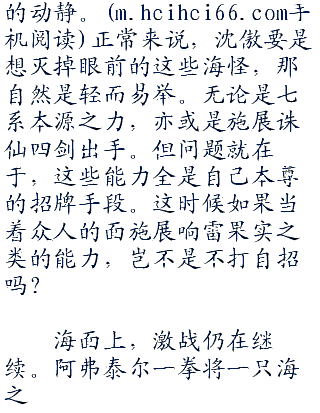 的动静。(m.hcihci66.com手
机阅读)正常来说，沈傲要是
想灭掉眼前的这些海怪，那
自然是轻而易举。无论是七
系本源之力，亦或是施展诛
仙四剑出手。但问题就在
于，这些能力全是自己本尊
的招牌手段。这时候如果当
着众人的面施展响雷果实之
类的能力，岂不是不打自招
吗？
海面上，激战仍在继
续。阿弗泰尔一拳将一只海
之